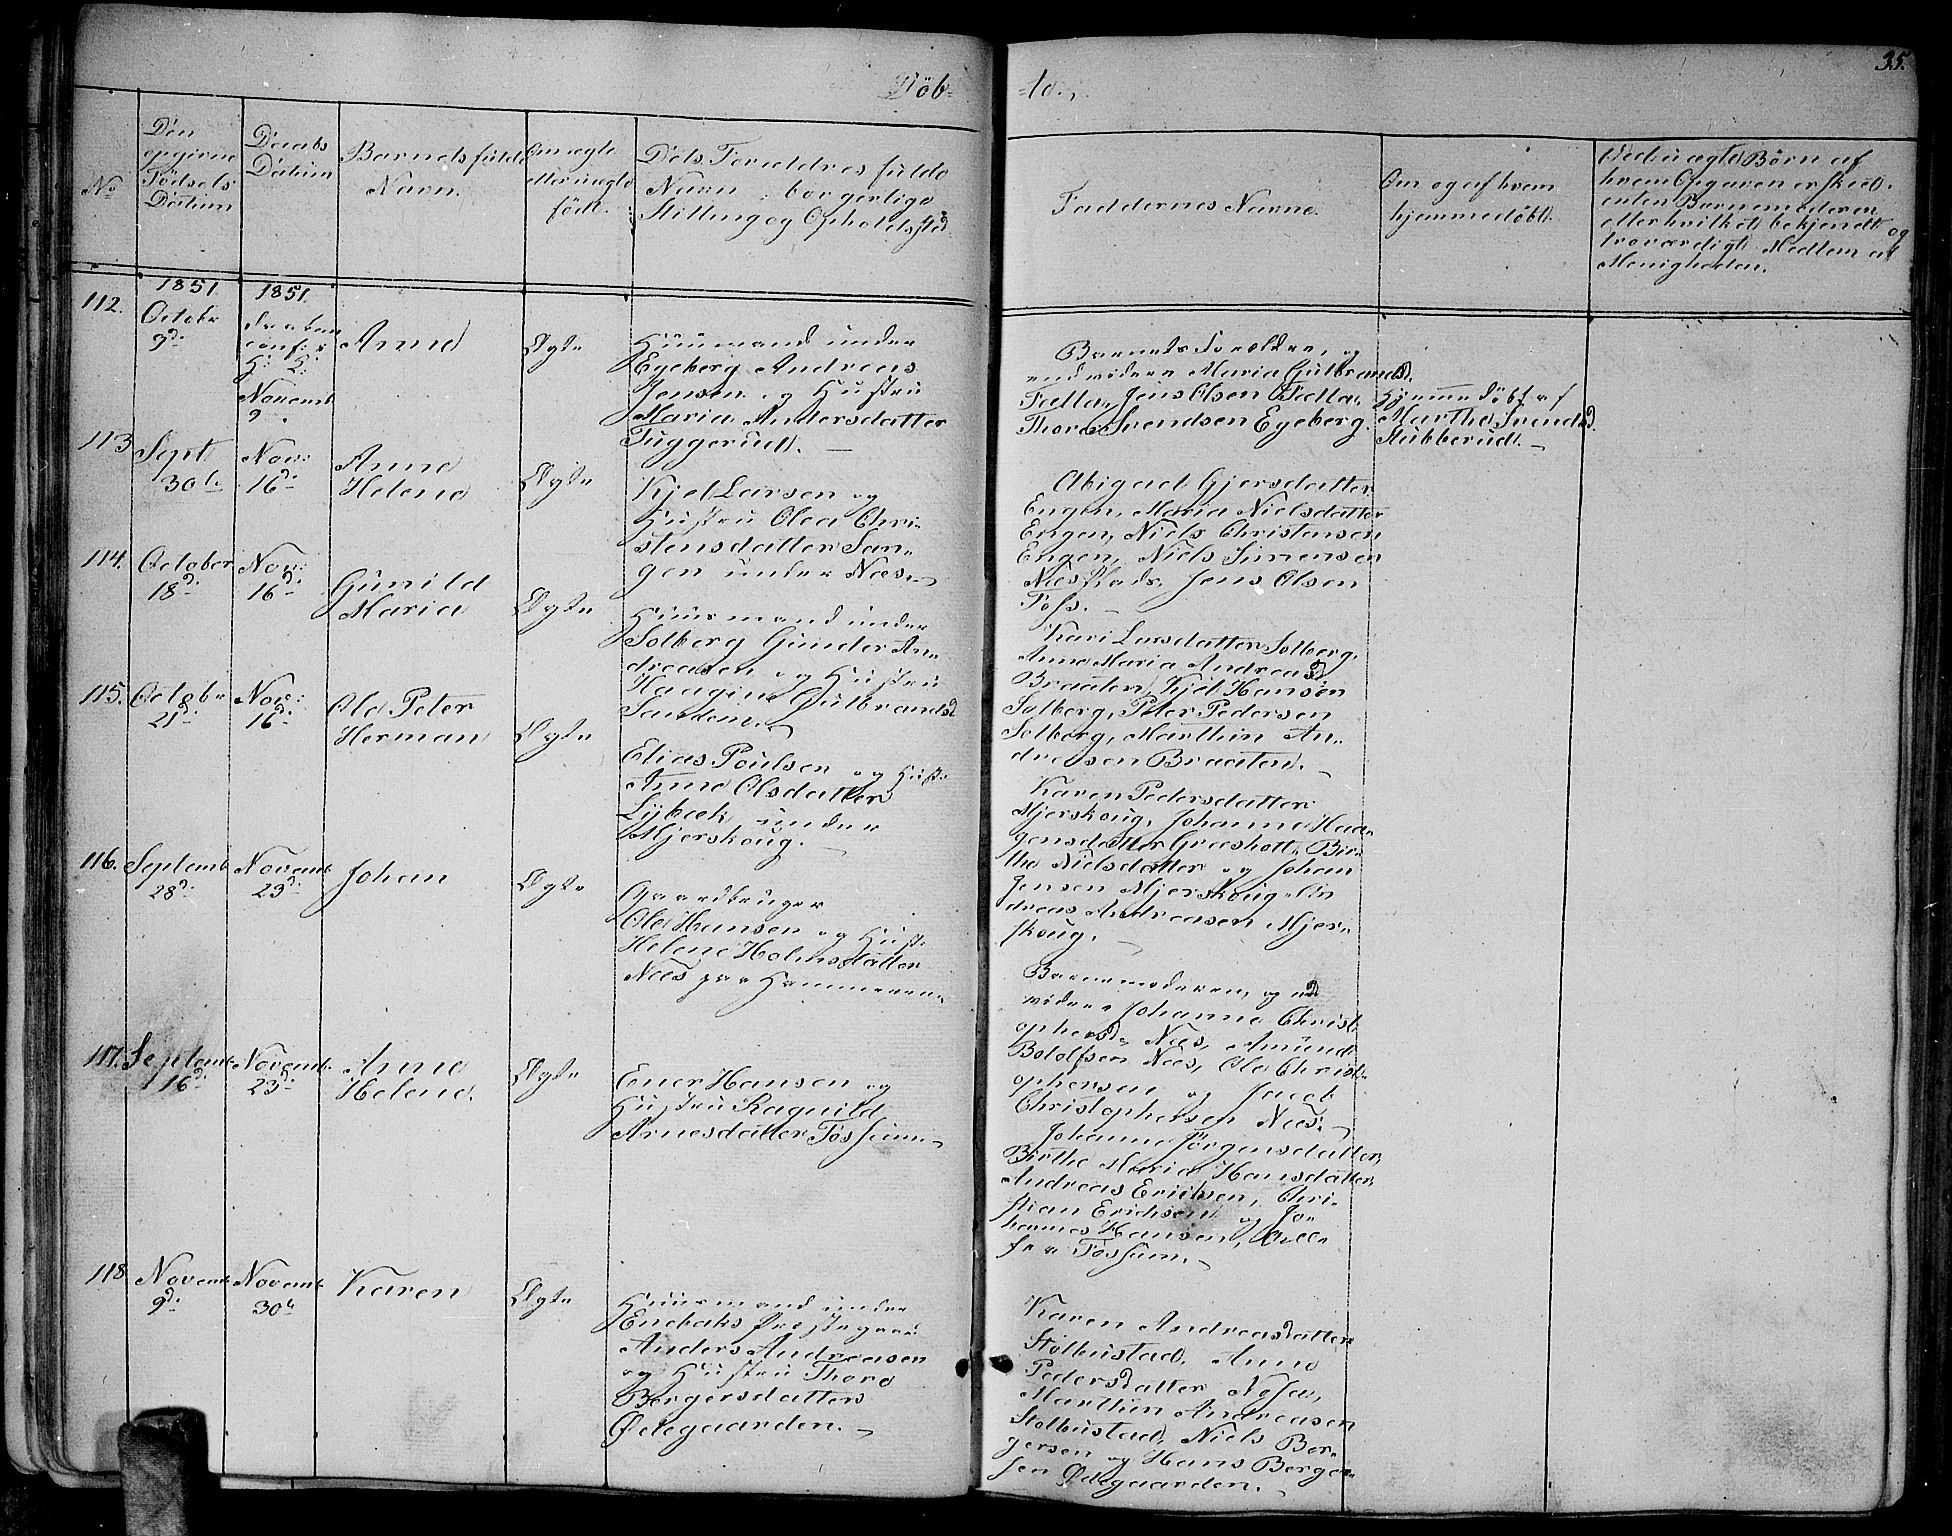 35.
Döb-
-te.
No
Den
opgivne
Födsels
Datum
Daabs
Datum
Barnets fulde
Navn.
Om ægte
eller uægte
födt.
Dets Forældres fulde
Navn, borgerlige
Stilling og Opholdssted
Faddernes Navne.
Om og af hvem
hjemmedöbt.
Ved uægte Börn af
hvem Opgaven er skeet,
enten Barnemoderen
eller hvilket bekjendt og
troværdigt Medlem af
Menigheden.
112.
1851
Octobr
9d:
1851
Daaben
conf: i
H: K:
Novemb
9.
Anne
Ægte
Huusmand under
Eyeberg Andreas
Jensen og Hustru
Maria Andersdatter
Tuggerud. —
Barnets Forældre, og
endvidere Maria Gulbrandsd.
Fælla, Jens Olsen Fælla,
Thore Svendsen Eyeberg.
Hjemmedöbt af
Marthe Svendsd.
Stubberud. —
113
Sept
30te
Nov:
16d:
Anne
Helene
Ægte
Kjel Larsen og
Hustru Olea Chri-
stensdatter San-
gen under Næs. —
Abigael Gjersdatter
Engen, Maria Nielsdatter
Engen, Niels Christensen
Engen, Niels Sürensen
Næs Plads, Jens Olsen
Foss. —
114.
October
18d:
Nov:
16d:
Gunild
Maria
Ægte
Huusmand under
Solberg Gunder An-
dreasen og Hustru
Haagine Gulbrandsd
Sandem. —
Kari Larsdatter Solberg,
Anne Maria Andreasd
Braaten, Kjel Hansen
Solberg, Peter Pedersen
Solberg, Marthin An-
dreasen Braaten. —
115.
Octobr
21d:
Nov:
16d:
Ole Peter
Herman
Ægte
Elias Poulsen og Hust:
Anne Olsdatter
Lybeck under
Mjerskoug. —
Karen Pedersdatter
Mjerskoug, Johanne Haa-
gensdatter Græsholt, Bir-
the Nielsdatter og Johan
Jensen Mjerskoug, An
dreas Andreasen Mjer-
skoug. —
116.
Septemb
28d:
Novemb
23d:
Johan
Ægte
Gaardbruger
Ole Hansen og Hust:
Helene Holmsdatter
Næs paa Hammeren.
Barnemoderen, og end
videre Johanne Christ-
ophersd. Næs, Amund
Bololfsen Næs, Ole Christ-
ophersen og Jacob
Christophersen Næs. —
117.
Septemb
16d:
Novemb.
23d:
Anne
Helene.
Ægte
Ener Hansen og
Hustru Ragnild
Arnesdatter Fossum. —
Johanne Jörgensdatter,
Birthe Maria Hansdatter,
Andreas Erichsen, Chri-
stian Erichsen og Jo-
hannes Hansen, Alle
fra Fossum. —
118
Novemb
9d:
Novemb
30te
Karen
Ægte
Huusmand under
Enebaks Præstegaard
Anders Andreasen
og Hustru Thore
Bergersdatter
Ødegaarden. —
Karen Andreasdatter
Stolbustad, Anne
Pedersdatter
Marthin Andreasen
Stolbustad, Niels Ber-
gersen og Hans Berger-
sen Ødegaarden. —